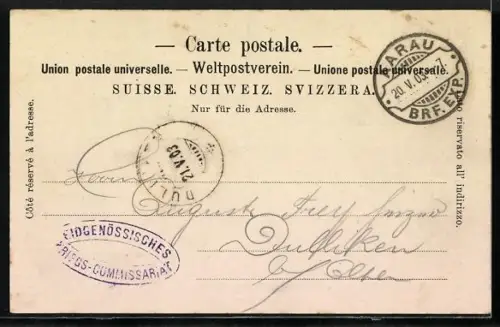 — Carte postale. —
Union postale universelle. — Weltpostverein. — Unione postale universale.
SUISSE. SCHWEIZ. SVIZZERA.
Nur für die Adresse.
Côté réservé à l'adresse.
riservato all' indirizzo.
AARAU
20.V.03. 7.
BRF. EXP.
DULLIK
21.V.03
Herrn
August Frey
Dulliken
b/ Olten
EIDGENÖSSISCHES
KRIEGS-COMMISSARIAT